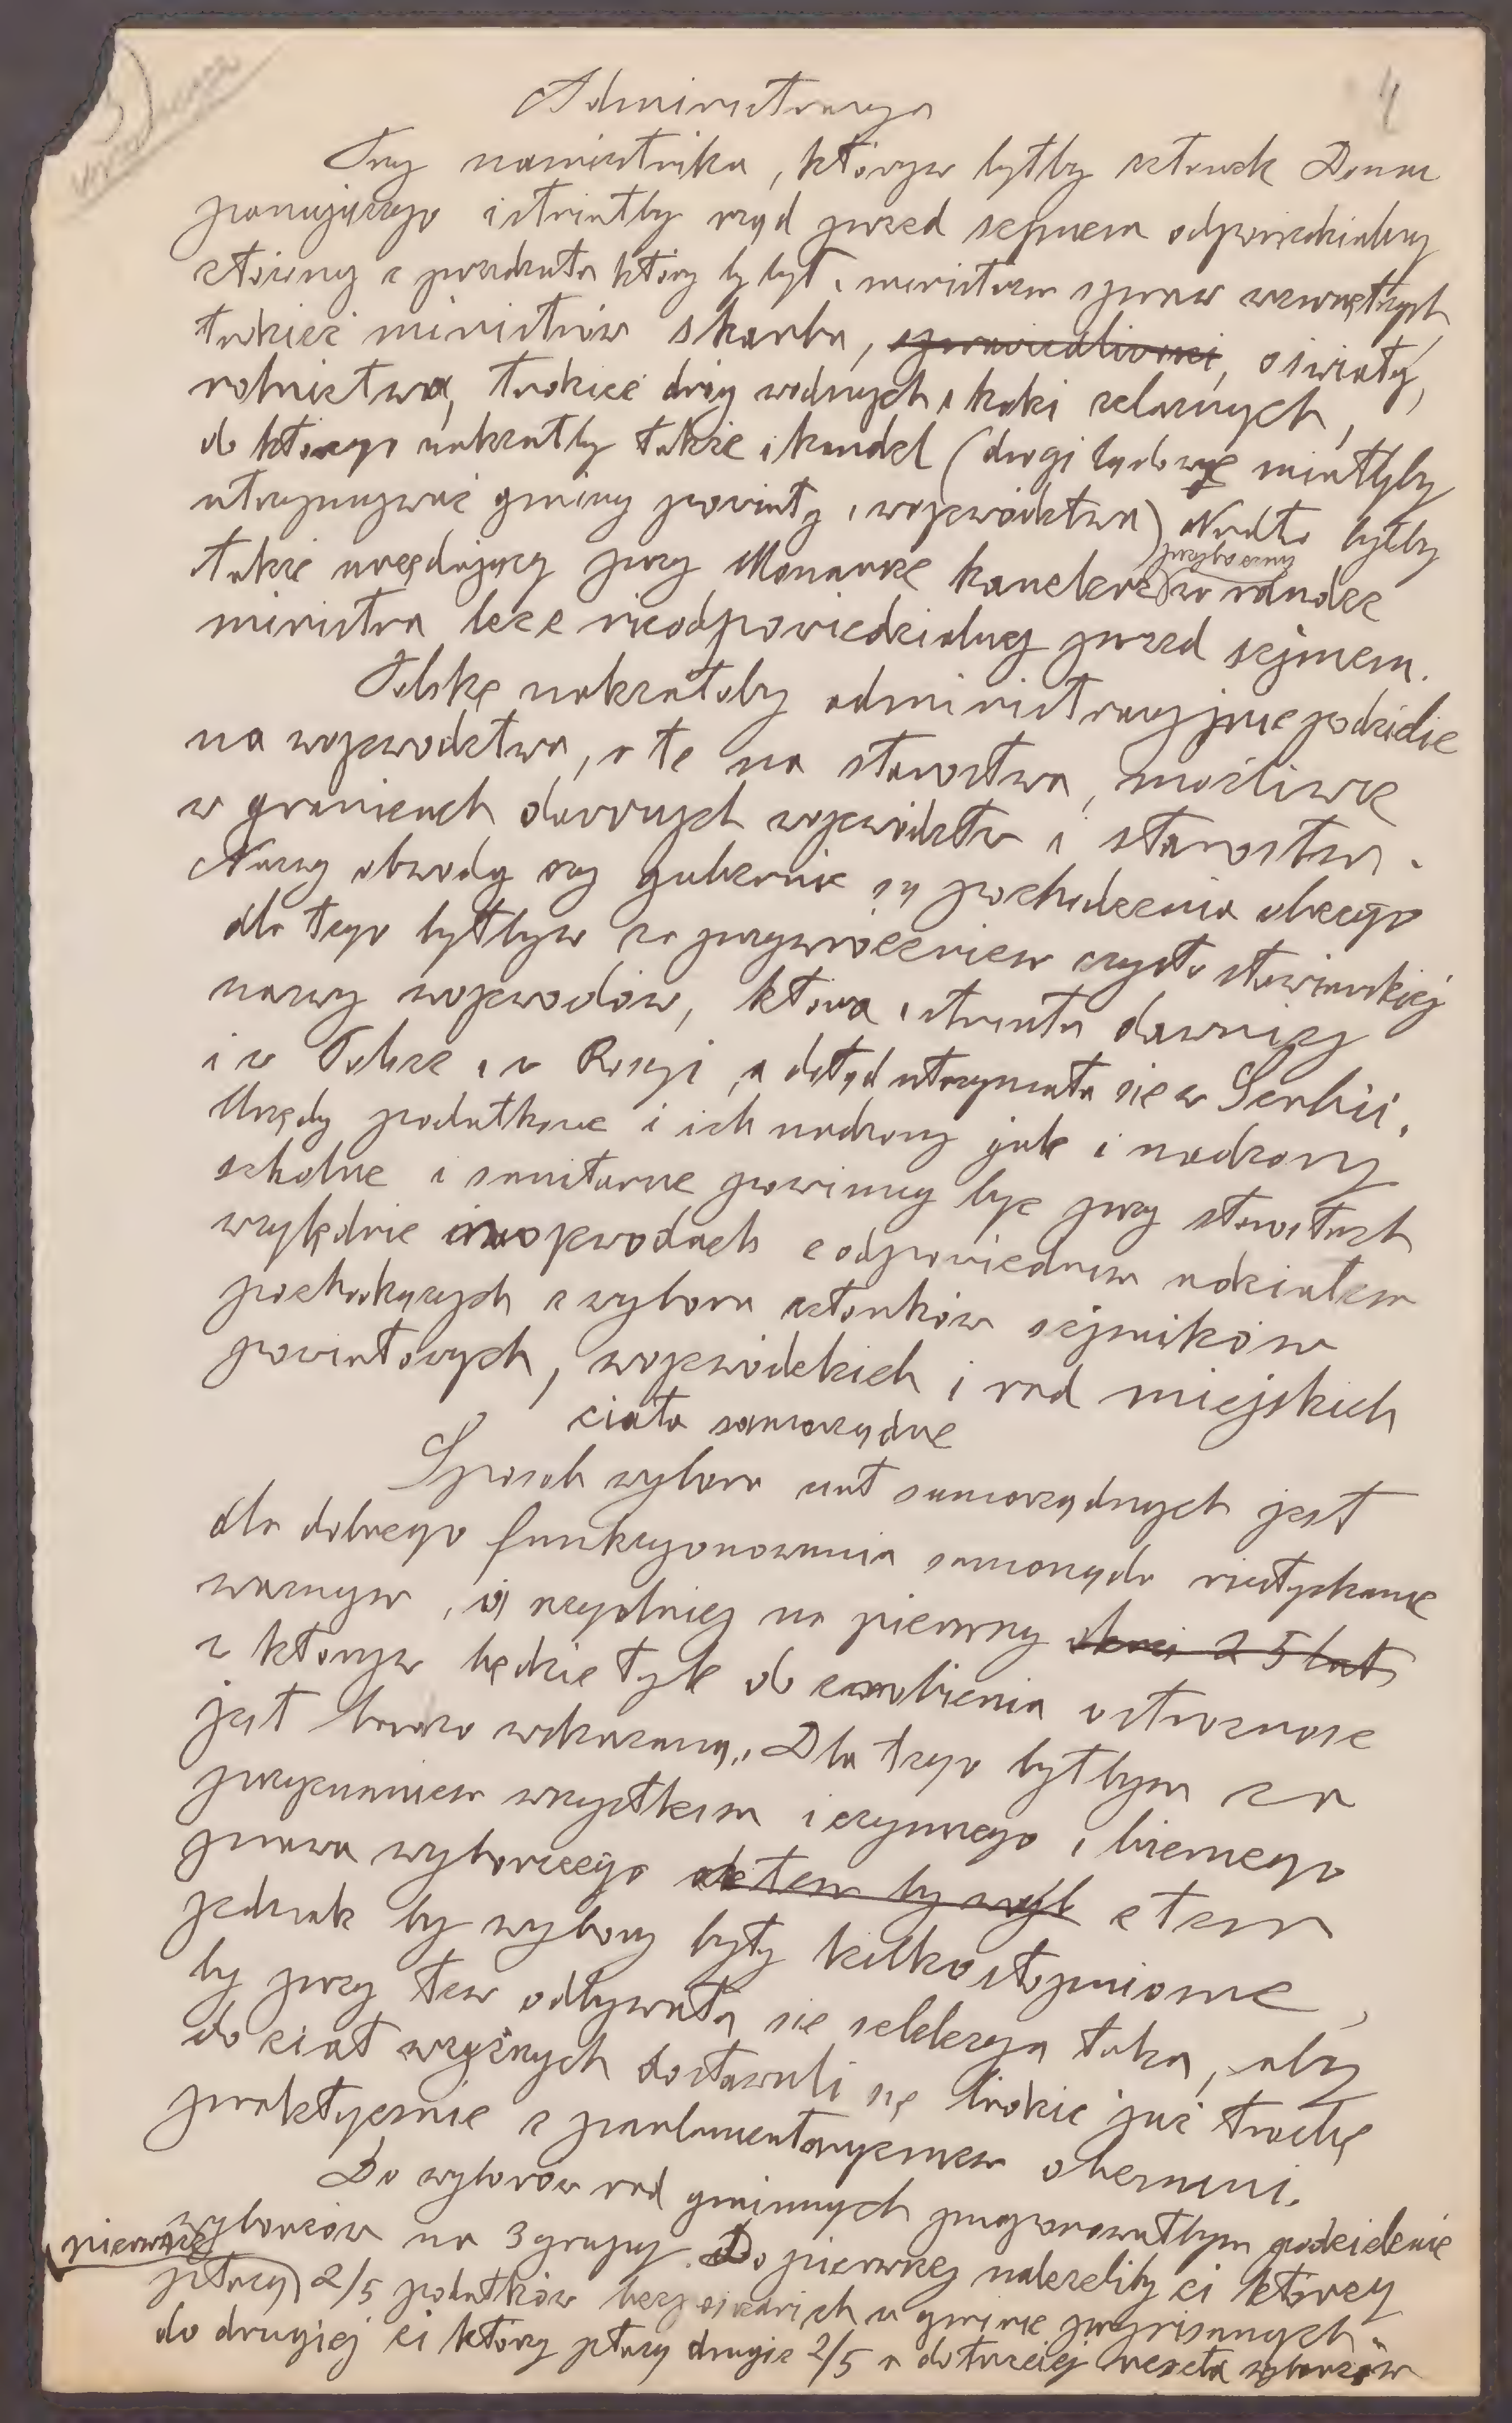 4
Administracya
Przy namiestniku, którym byłby członek Domu
panującego istniałby rząd przed sejmem odpowiedzialny
złożony z prezydenta który by był i ministrem spraw wewnętrznych
tudzież ministrów skarbu, sprawiedliwości, oświaty,
rolnictwa, tudzież dróg wodnych i kolei żelaznych,
do którego należałby także i handel (drogi lądowe miałyby
utrzymywać gminy powiaty i województwa) Nadto byłby
także urzędujący przy Monarsze kanclerz przyboczny w randze
ministra lecz nieodpowiedzialny przed sejmem.
Polskę należałoby administracyjnie podzielić
na województwa, a te na starostwa, możliwie
w granicach dawnych województw i starostw.
Nazwy obwody czy gubernie są pochodzenia obcego
dla tego byłbym za przywróceniem czysto słowiańskiej
nazwy wojewodów, która istniała dawniej
i w Polsce i w Rosyi, a dotąd utrzymała się w Serbii.
Urzędy podatkowe i ich nadzory jak i nadzory
szkolne i sanitarne powinny być przy starostach
względnie wojewodach z odpowiednim udziałem
pochodzących z wyboru członków sejmików
powiatowych, wojewódzkich i rad miejskich
ciała samorządne
Sposób wyboru ciał samorządnych jest
dla dobrego funkcyonowania samorządu niesłychanie
ważnym, i szczególniej na pierwszy okres 25 lat
w którym będzie tyle do zrobienia ostrożność
jest bardzo wskazaną. Dla tego byłbym za
przyznaniem wszystkim i czynnego i biernego
prawa wyborczego z tem
jednak by wybory były kilkostopniowe,
by przy tem odbywała się selekcya taka, aby
do ciał wyższych dostawali się ludzie już trochę
praktycznie z parlamentaryzmem obeznani.
Do wyborów rad gminnych proponowałbym podzielenie
wyborców na 3 grupy. Do pierwszej należeliby ci którzy
płacą pierwsze 2/5 podatków bezpośrednich w gminie przypisanych.
do drugiej ci którzy płacą drugie 2/5 a do trzeciej reszta wyborców